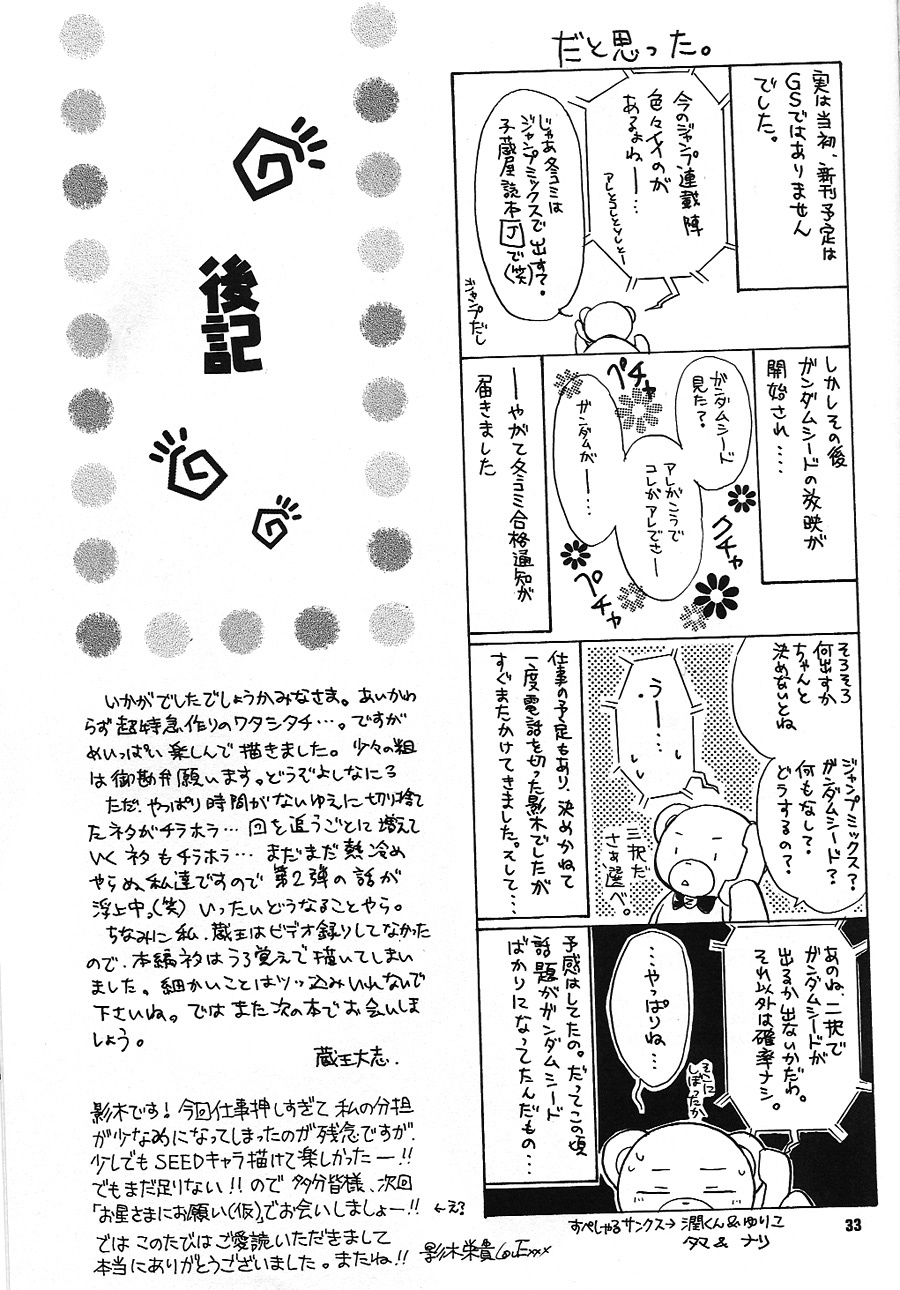 だと思った。
実は当初、新刊予定は
GSではありません
でした。
今のジャンプ連載陣
色々イイのが
あるよねー…
アレとコレとソレとー
じゃあ冬コミは
ジャンプミックスで出す?
子蔵屋読本Jで(笑)
ジャンプだし
しかしその後
ガンダムシードの放映が
開始され……
ガンダムシード
見た?
アレがこうで
コレがアレでさー
ガンダムがー…
ペチャ
クチャ
ペチャ
——やがて冬コミ合格通知が
届きました
そろそろ
何出すか
ちゃんと
決めないとね
ジャンプミックス?
ガンダムシード?
何もなして?
どうするの?
うー……
三択だ
さあ選べ。
仕事の予定もあり、決めかねて
一度電話を切った影木でしたが
すぐまたかけてきました。そして…
あのね、二択で
ガンダムシードが
出るか出ないかだわ。
それ以外は確率ナシ。
そこに
しぼったか
…やっぱりね…
予感はしてたの。だってこの頃
話題がガンダムシード
ばかりになってたんだもの…
すぺしゃるサンクス→潤くん&ゆりこ
タマ & ナリ
33
後記
いかがでしたでしょうかみなさま。あいかわ
らず超特急作りのワタシタチ…。ですが
めいっぱい楽しんで描きました。少々の粗
は御勘弁願います。どうぞよしなに
ただ、やっぱり時間がないゆえに切り捨て
たネタがチラホラ…回を追うごとに増えて
いくネタもチラホラ…まだまだ熱冷め
やらぬ私達ですので第2弾の話が
浮上中。(笑) いったいどうなることやら。
ちなみに私、蔵王はビデオ録りしてなかった
ので、本編ネタはうろ覚えで描いてしまい
ました。細かいことはツッ込みいれないで
下さいね。ではまた次の本でお会いしま
しょう。
蔵王大志.
影木です! 今回仕事押しすぎて私の分担
が少なめになってしまったのが残念ですが、
少しでもSEEDキャラ描けて楽しかったー!!
でもまだ足りない!! ので多分皆様、次回
「お星さまにお願い(仮)」でお会いしましょー!! ←え?
ではこのたびはご愛読いただきまして
本当にありがとうございました。またね!! 影木栄貴